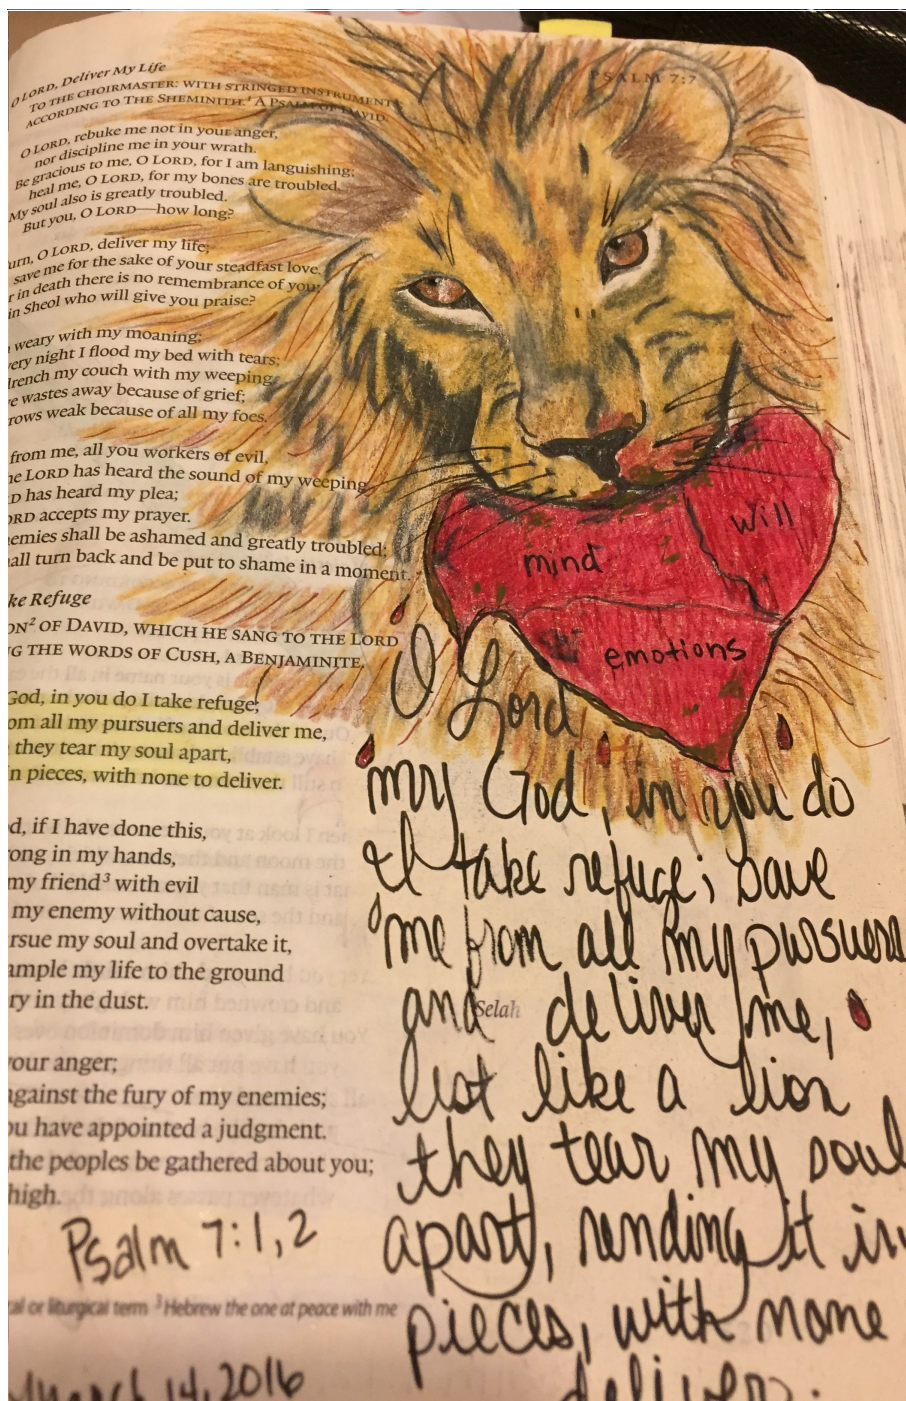 O LORD, Deliver My Life
PSALM 7:7
TO THE CHOIRMASTER: WITH STRINGED INSTRUMENTS;
ACCORDING TO THE SHEMINITH.¹ A PSALM OF DAVID.
O LORD, rebuke me not in your anger,
nor discipline me in your wrath.
Be gracious to me, O LORD, for I am languishing;
heal me, O LORD, for my bones are troubled.
My soul also is greatly troubled.
But you, O LORD—how long?
urn, O LORD, deliver my life;
save me for the sake of your steadfast love.
r in death there is no remembrance of you;
in Sheol who will give you praise?
weary with my moaning;
very night I flood my bed with tears;
drench my couch with my weeping.
e wastes away because of grief;
rows weak because of all my foes.
from me, all you workers of evil,
he LORD has heard the sound of my weeping.
D has heard my plea;
ORD accepts my prayer.
enemies shall be ashamed and greatly troubled;
all turn back and be put to shame in a moment.
ke Refuge
ON² OF DAVID, WHICH HE SANG TO THE LORD
G THE WORDS OF CUSH, A BENJAMINITE.
God, in you do I take refuge;
om all my pursuers and deliver me,
they tear my soul apart,
n pieces, with none to deliver.
d, if I have done this,
ong in my hands,
my friend³ with evil
my enemy without cause,
rsue my soul and overtake it,
ample my life to the ground
ry in the dust.
Selah
your anger;
against the fury of my enemies;
ou have appointed a judgment.
the peoples be gathered about you;
high.
al or liturgical term ³ Hebrew the one at peace with me
mind
will
emotions
O Lord
my God, in you do
I take refuge; save
me from all my pursuers
and deliver me,
lest like a lion
they tear my soul
apart, rending it in
pieces, with none
deliver.
Psalm 7:1,2
March 14, 2016